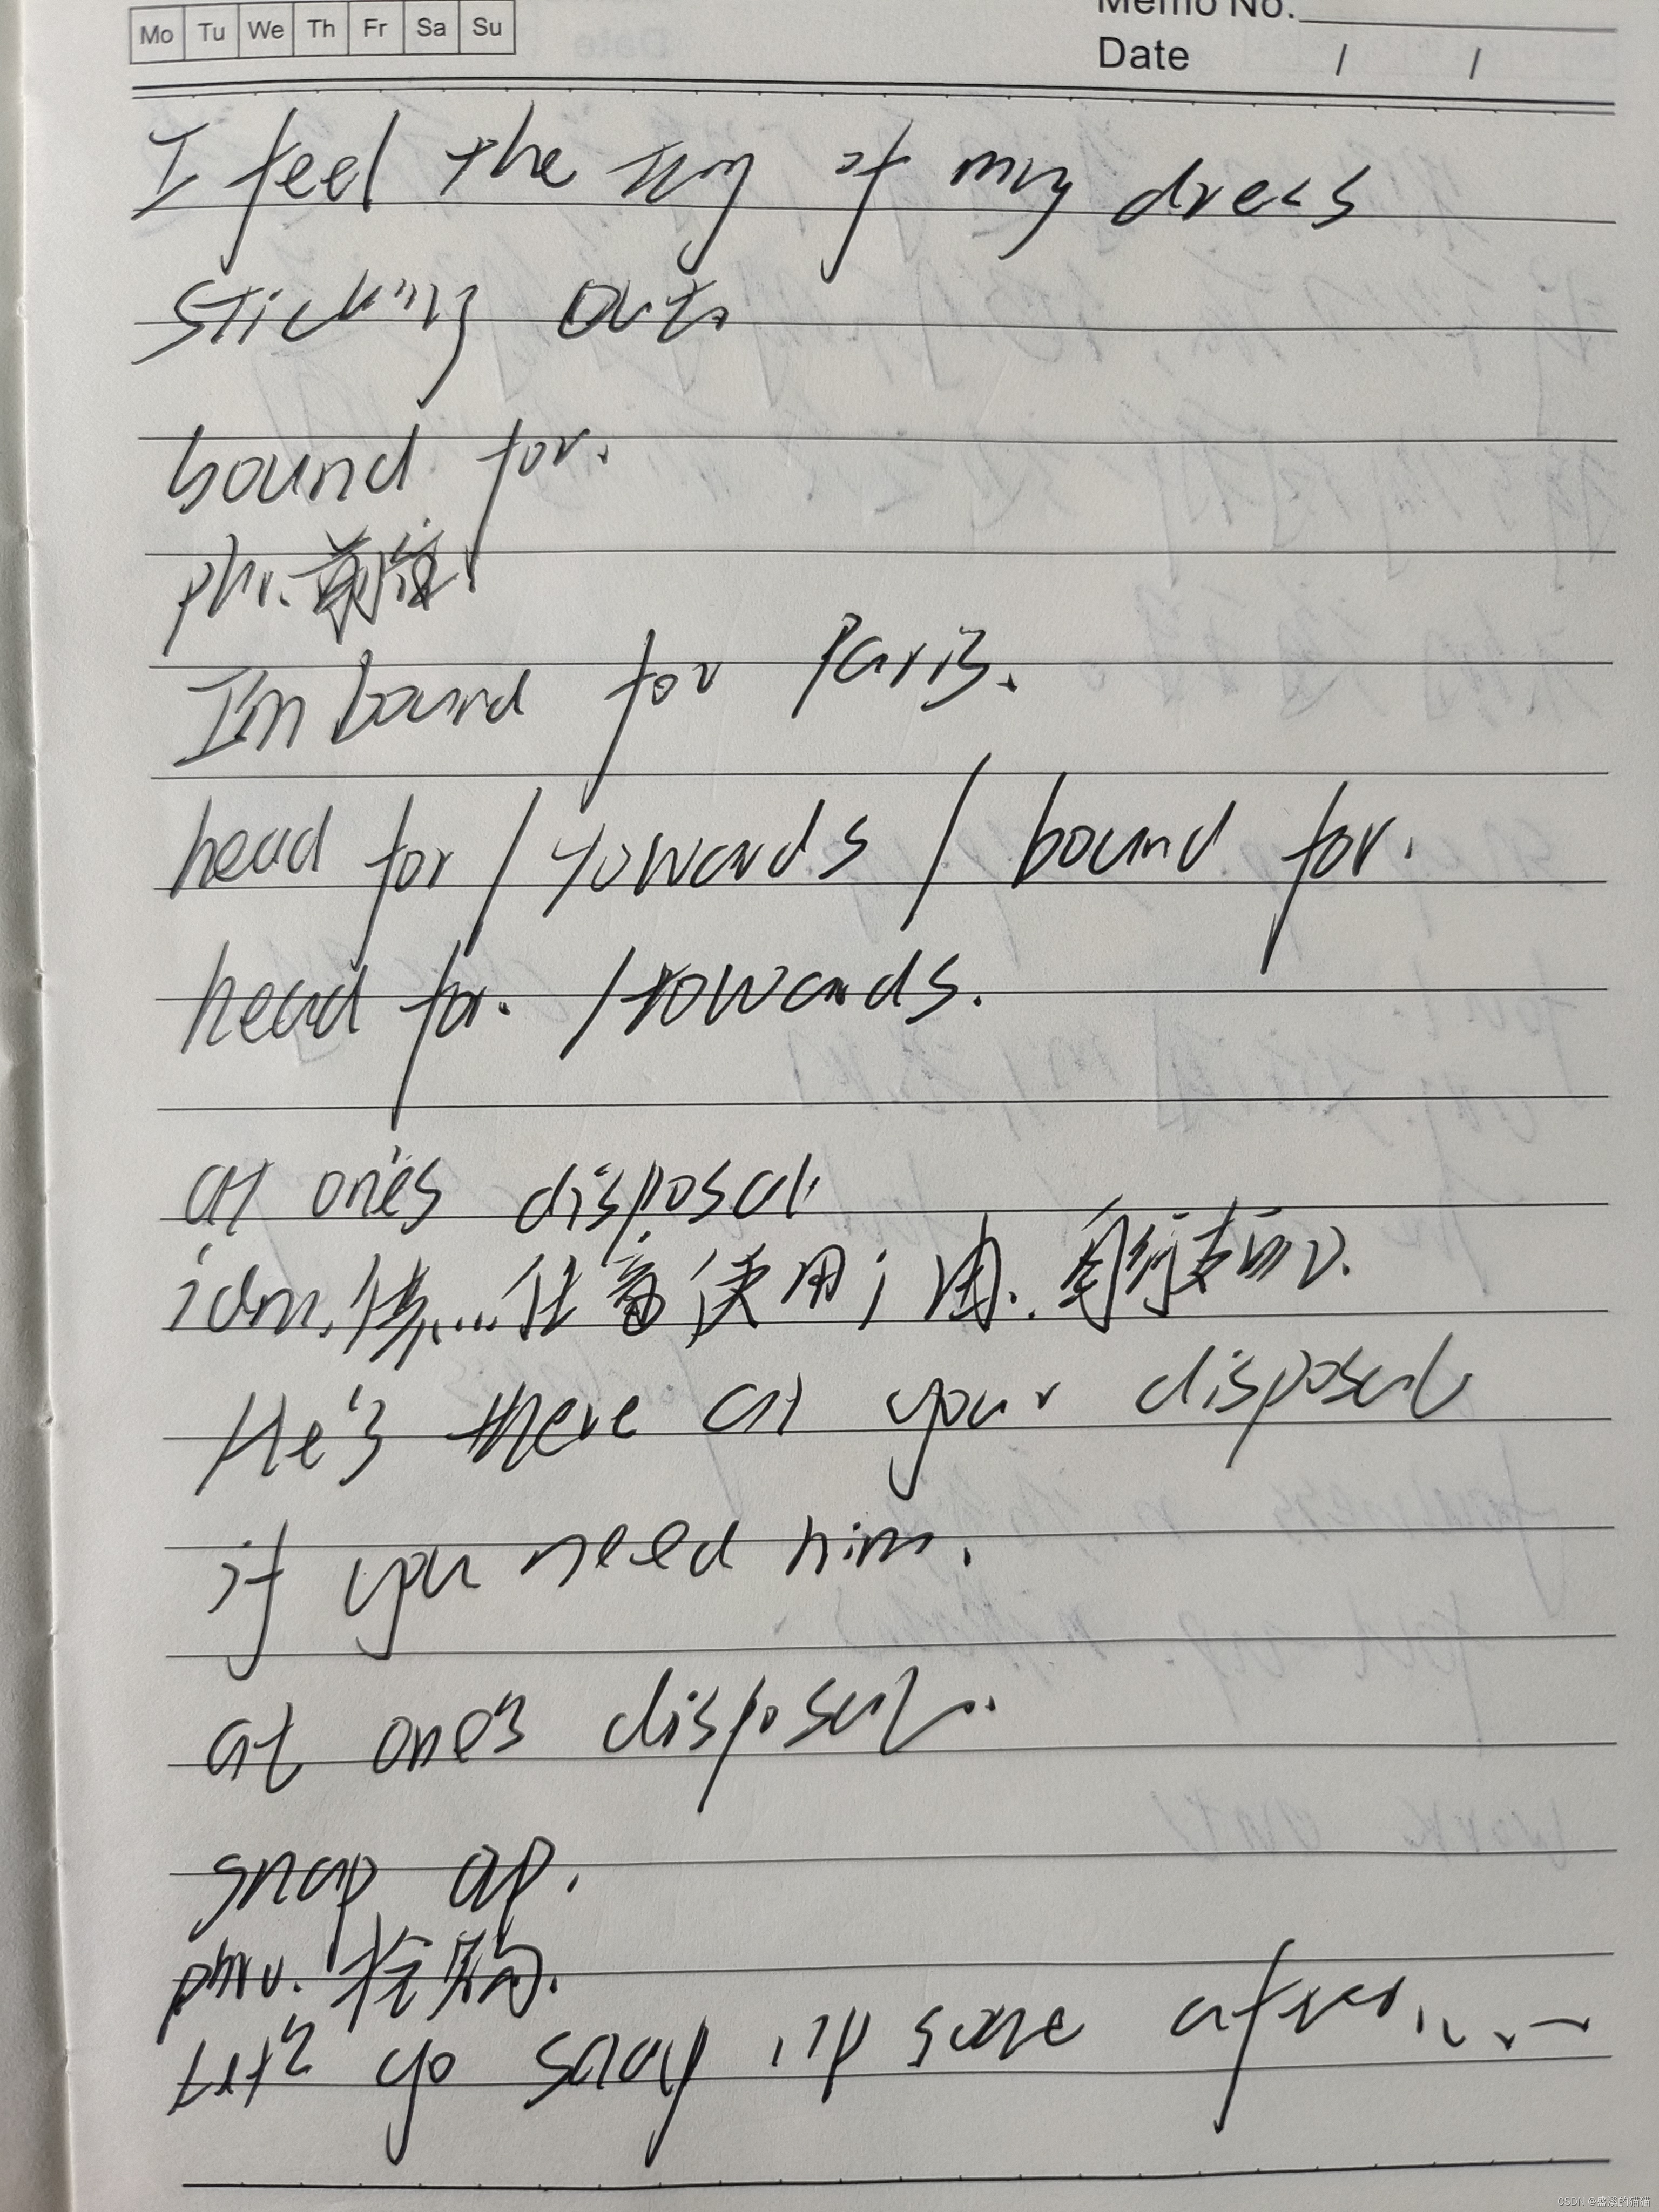 Mo Tu We Th Fr Sa Su
Memo No.
Date / /
I feel the tag of my dress
sticking out.
bound for.
phr. 前往
I'm bound for Paris.
head for / towards / bound for.
head for. / towards.
at one's disposal.
idm. 供...任意使用; 由. 自行支配.
He's there at your disposal
if you need him.
at one's disposal.
snap up.
phrv. 抢购.
Let's go snap up some after.....
CSDN @盛溪的猫猫